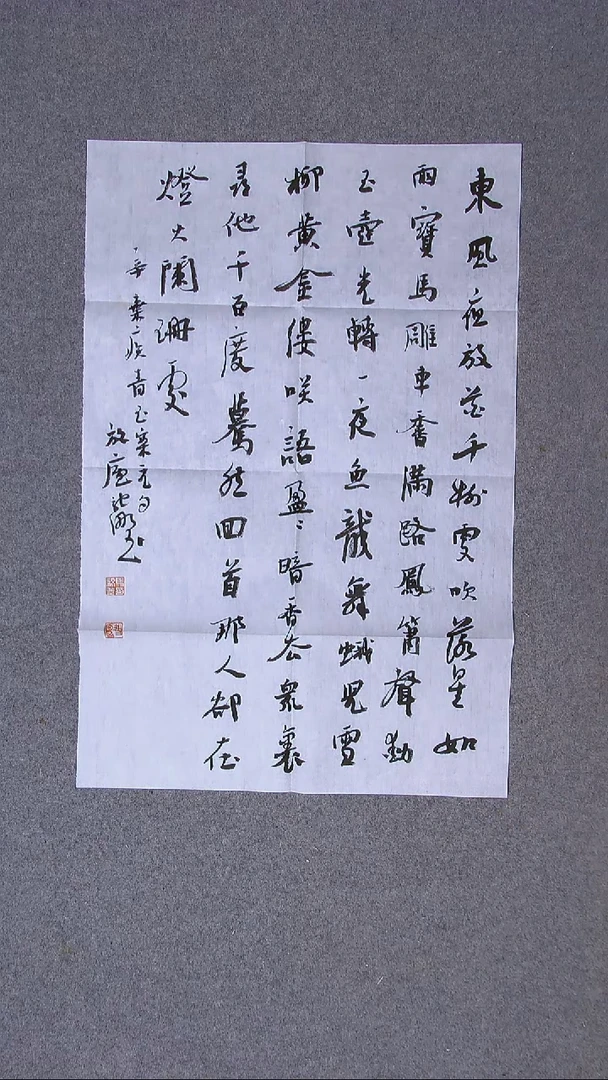 東風夜放花千樹更吹落星如
雨寶馬雕車香滿路鳳簫聲動
玉壺光轉一夜魚龍舞蛾兒雪
柳黃金縷咲語盈々暗香去衆裏
尋他千百度驀然回首那人卻在
燈火闌珊處
辛棄疾青玉案元夕